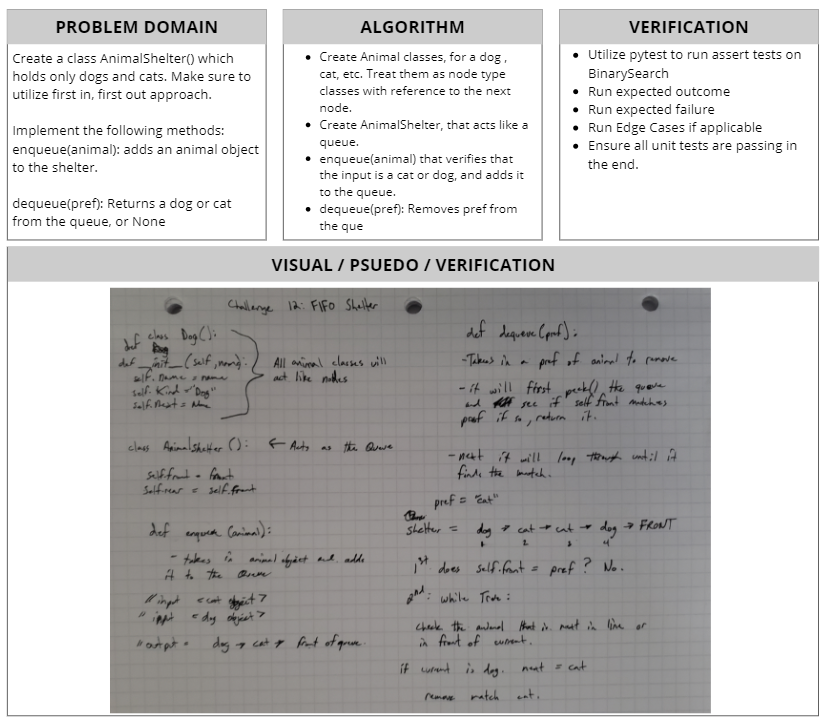 PROBLEM DOMAIN
Create a class AnimalShelter() which
holds only dogs and cats. Make sure to
utilize first in, first out approach.
Implement the following methods:
enqueue(animal): adds an animal object
to the shelter.
dequeue(pref): Returns a dog or cat
from the queue, or None
ALGORITHM
• Create Animal classes, for a dog ,
cat, etc. Treat them as node type
classes with reference to the next
node.
• Create AnimalShelter, that acts like a
queue.
• enqueue(animal) that verifies that
the input is a cat or dog, and adds it
to the queue.
• dequeue(pref): Removes pref from
the que
VERIFICATION
• Utilize pytest to run assert tests on
BinarySearch
• Run expected outcome
• Run expected failure
• Run Edge Cases if applicable
• Ensure all unit tests are passing in
the end.
VISUAL / PSUEDO / VERIFICATION
Challenge 12: FIFO Shelter
def class Dog():
def __init__(self, name):
self.name = name
self.kind = "Dog"
self.next = None
All animal classes will
act like nodes
class AnimalShelter():
← Acts as the Queue
self.front = front
self.rear = self.front
def enqueue (animal):
- takes in animal object and adds
it to the Queue
"input <cat object>
"input <dog object>
"output = dog → cat → front of queue
def dequeue(pref):
- Takes in a pref of animal to remove
- it will first peek() the queue
and see if self.front matches
pref if so, return it.
- next it will loop through until it
finds the match.
pref = "cat"
shelter = dog → cat → cat → dog → FRONT
1 2 3 4
1st does self.front = pref ? No.
2nd: while True:
check the animal that is next in line or
in front of current.
if current is dog. next = cat
remove match cat.